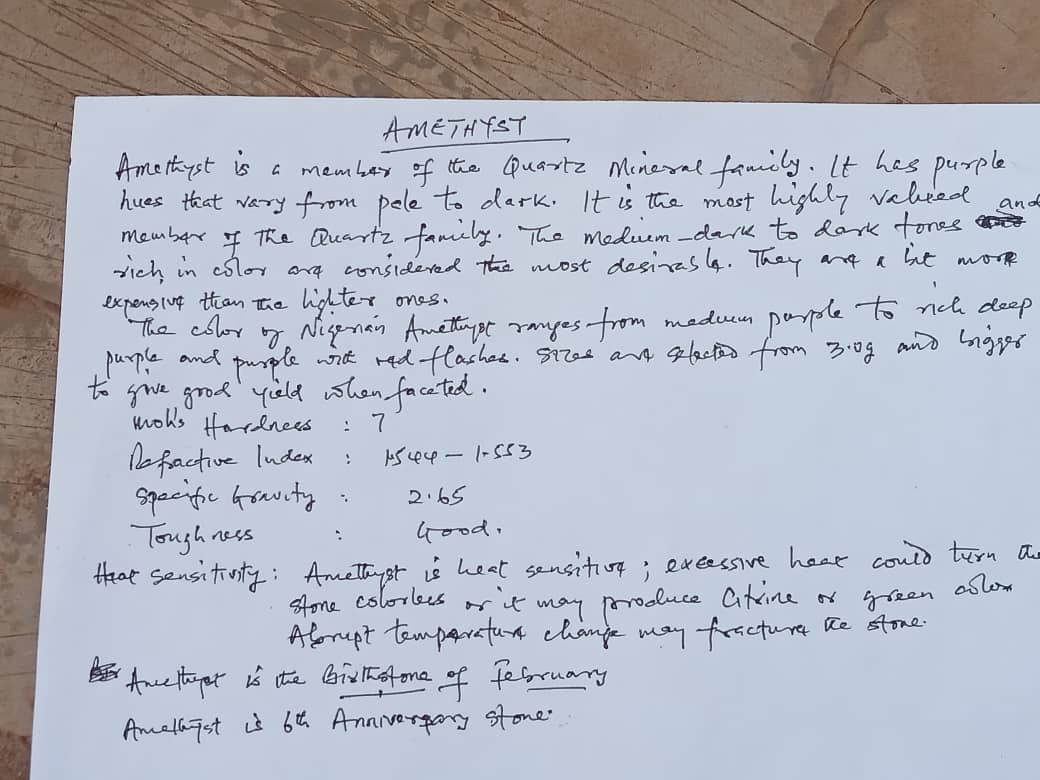 AMETHYST
Amethyst is a member of the Quartz Mineral family. It has purple
hues that vary from pale to dark. It is the most highly valued
member of The Quartz family. The medium-dark to dark tones and
rich in color are considered the most desirable. They are a bit more
expensive than the lighter ones.
The color of Nigerian Amethyst ranges from medium purple to rich deep
purple and purple with red flashes. Sizes are selected from 3.0g and bigger
to give good yield when faceted.
Moh's Hardness : 7
Refractive Index : 1.544 - 1.553
Specific Gravity : 2.65
Toughness : Good.
Heat Sensitivity : Amethyst is heat sensitive ; excessive heat could turn the
stone colorless or it may produce Citrine or green color
Abrupt temperature change may fracture the stone.
Amethyst is the Birthstone of February
Amethyst is 6th Anniversary stone.